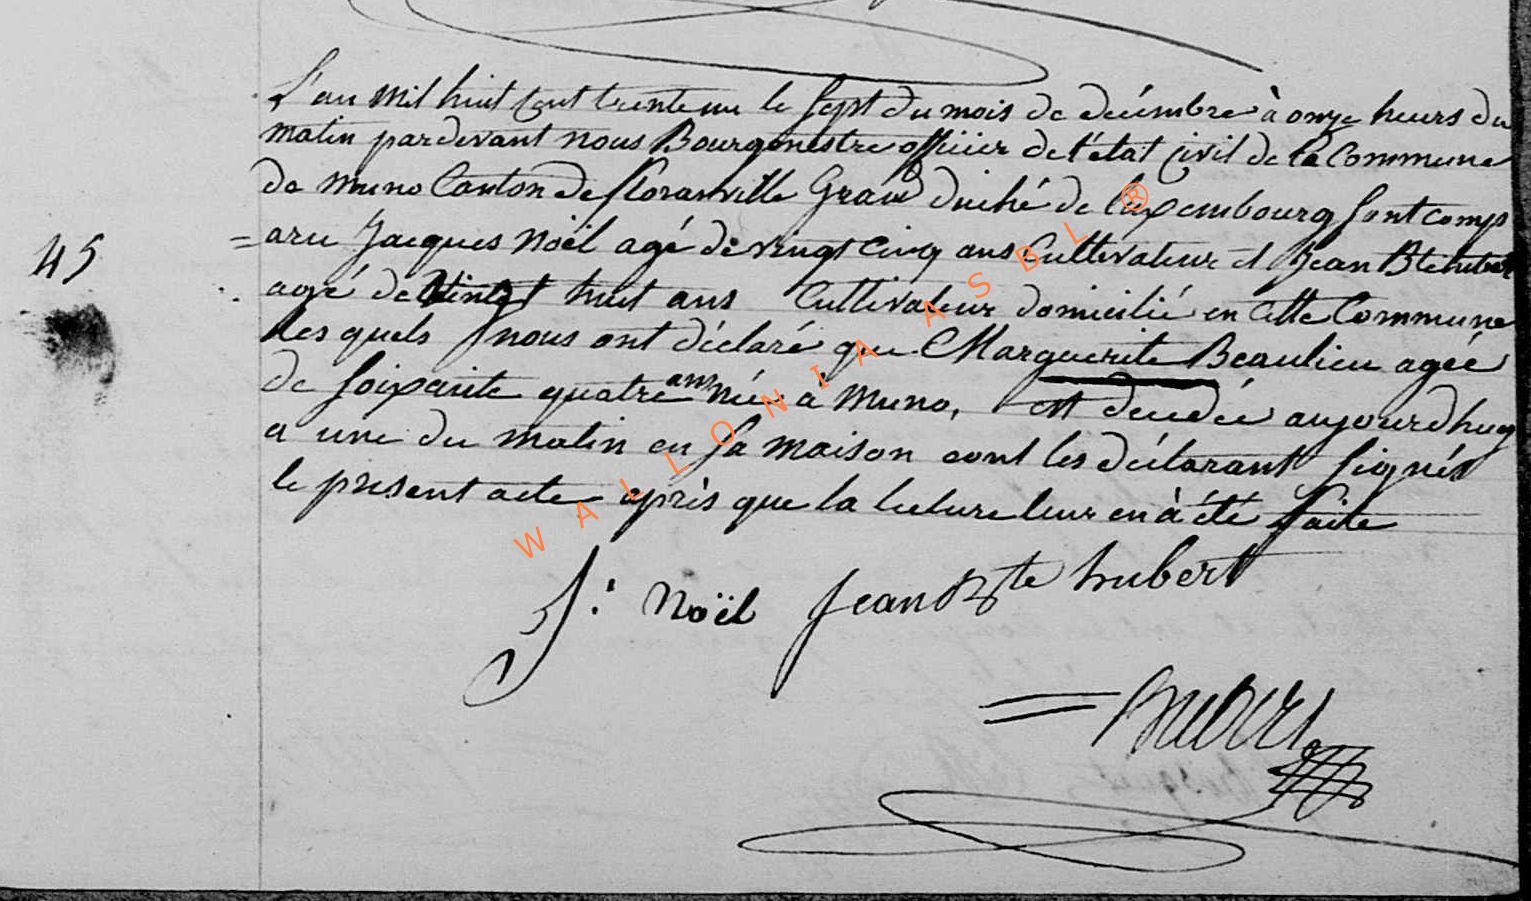 L'an mil huit cent trente un le sept du mois de decémbre à onze heurs du
matin pardevant nous Bourgmestre officier de l'état civil de la Commune
de muno Canton de floranville Grand duché de Luxembourg sont comp
45 = aru Jacques Noël agé de vingt cinq ans Cultivateur et Jean Bte hubert
agé de Vingt huit ans Cultivateur domicilié en cette Commune
les quels nous ont déclaré que Marguerite Beaulieu agée
de soixante quatre ans née à muno, est decedée aujourdhuy
a une du matin en sa maison eont les déclarant signés
le present acte après que la lecture leur en à été faite
J: Noël Jean Bte hubert
WALLONIA ASBL ®